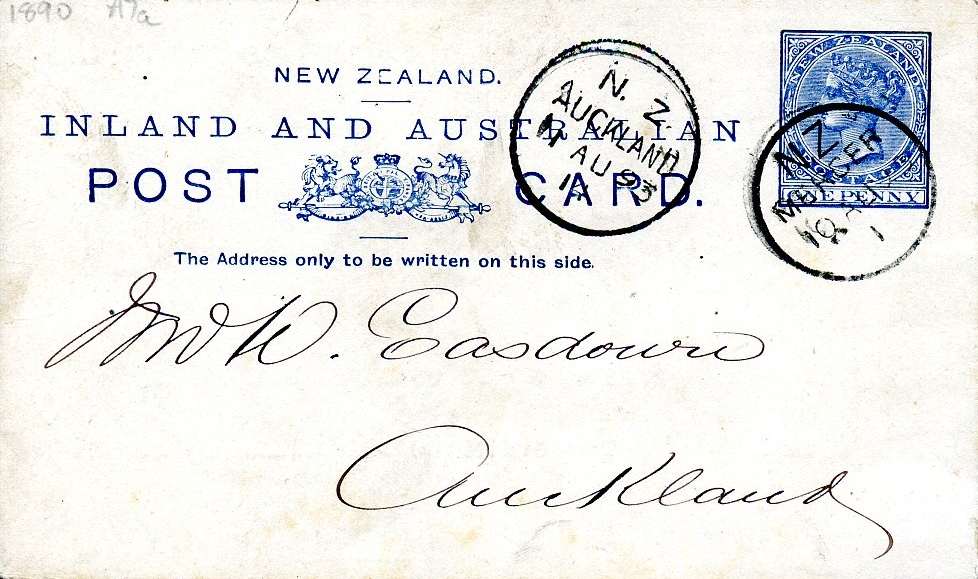 1890 A7a
NEW ZEALAND.
INLAND AND AUSTRALIAN
POST CARD.
The Address only to be written on this side.
NEW ZEALAND
POSTAGE
ONE PENNY
N. Z
AUCKLAND
17 AU 93
N Z
MERCER
16 AU
1
W. Easdown
Auckland